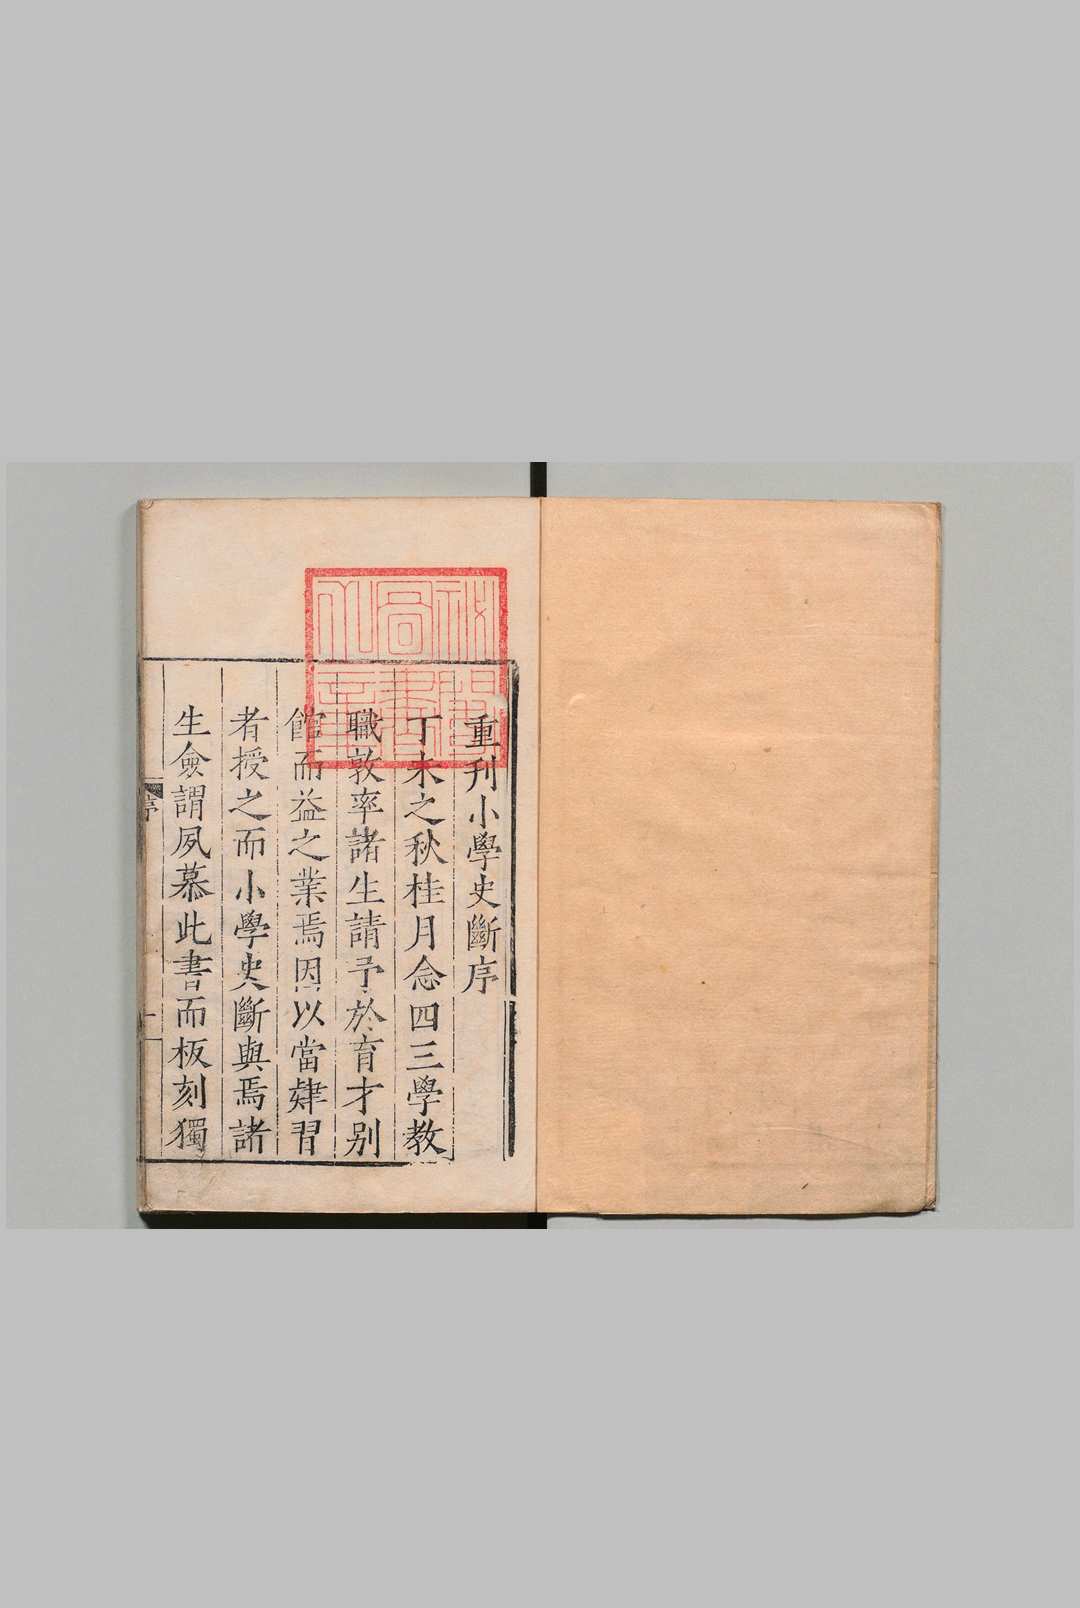 重刊小學史斷序
丁未之秋桂月念四三學教
職敦率諸生請予於育才別
館而益之業焉因以當肄習
者授之而小學史斷與焉諸
生僉謂夙慕此書而板刻獨
序
一